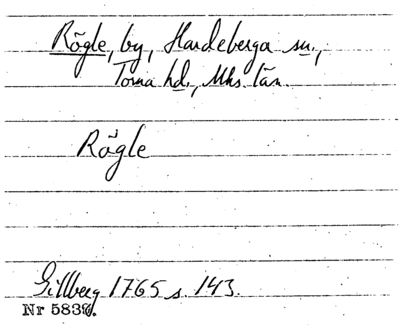 Rögle, by, Hardeberga sn.,
Torna hd., Mhs. län.
Rögle
Gillberg 1765 s. 143.
Nr 5838.